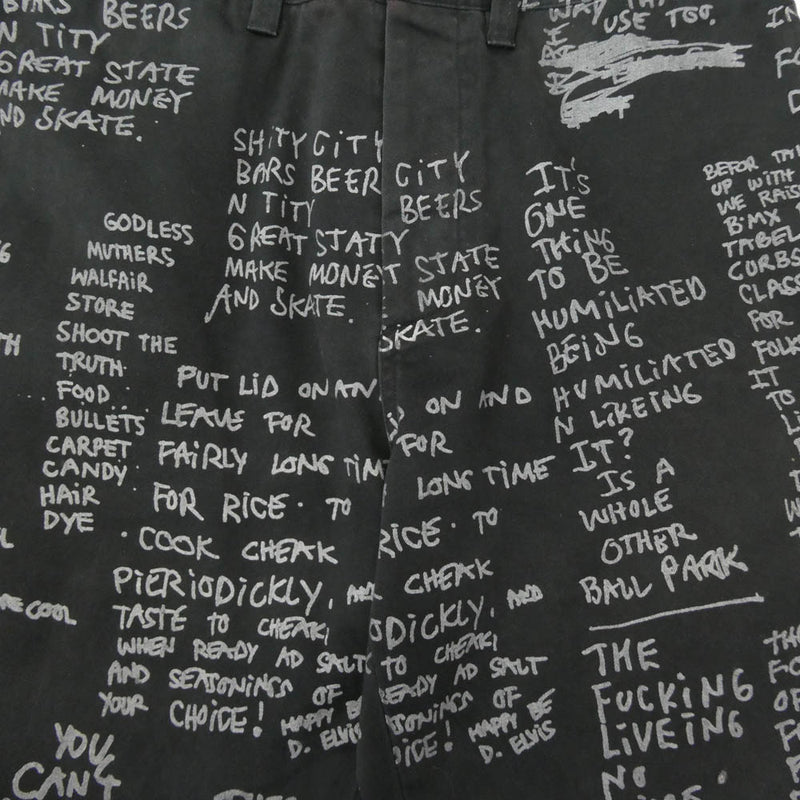 BARS BEERS
N TITY
GREAT STATE
MAKE MONEY
AND SKATE.
SHITY CITY
BARS BEER
N TITY
GREAT STATY
MAKE MONEY
AND SKATE.
CITY
BEERS
STATE
MONEY
SKATE.
WAY
USE TOO.
GODLESS
MUTHERS
WALFAIR
STORE
SHOOT THE
TRUTH
FOOD
BULLETS
CARPET
CANDY
HAIR
DYE
PUT LID ON AN
LEAVE FOR
FAIRLY LONG TIM
FOR RICE. TO
COOK CHEAK
PIERIODICKLY,
TASTE TO CHEAK,
WHEN READY AD SALT
AND SEASONINGS OF
YOUR CHOICE! HAPPY BE
D. ELVIS
ON AND
FOR
LONG TIME
RICE. TO
CHEAK
ODICKLY, AND
TO CHEAK,
READY AD SALT
SEASONINGS OF
OICE! HAPPY BE
D. ELVIS
IT'S
ONE
THING
TO BE
HUMILIATED
BEING
HUMILIATED
N LIKEING
IT?
IS A
WHOLE
OTHER
BALL PARK
THE
FUCKING
LIVEING
NO
BEFOR
UP WITH
WE RAIS
BMX
TABEL
CORBS
CLASS
FOR
FOLK
IT
TO
COOL
YOU
CAN'T